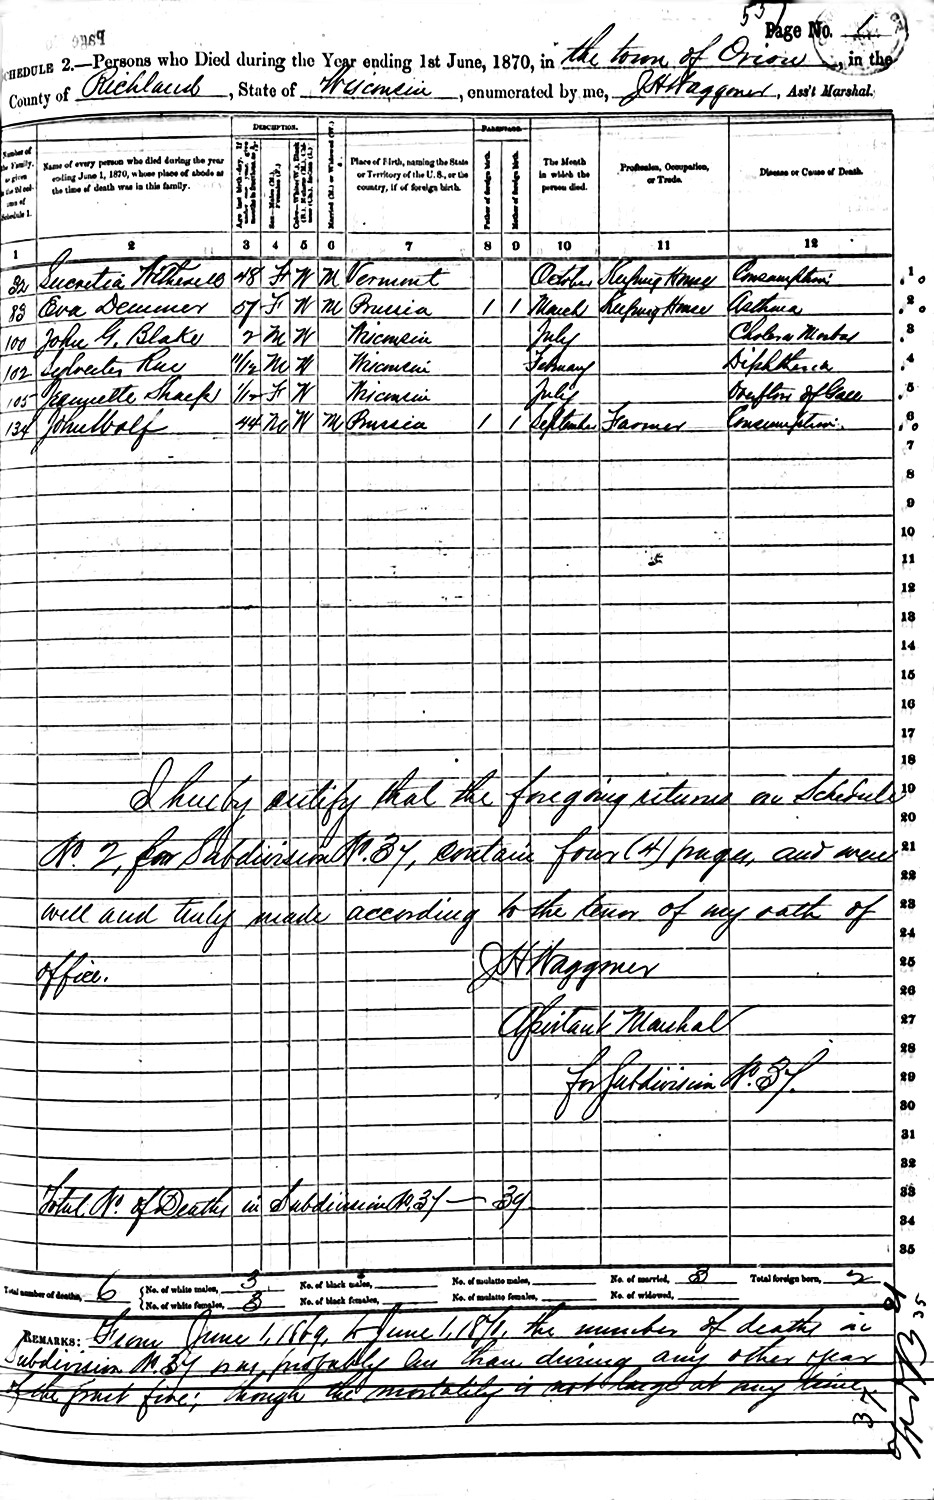 557
Page No. 1
SCHEDULE 2.—Persons who Died during the Year ending 1st June, 1870, in the town of Orion, in the
County of Richland, State of Wisconsin, enumerated by me, J H Waggoner, Ass't Marshal.
DESCRIPTION. PARENTAGE.
Number of the Family, as given in the 2d column of Schedule 1.
Name of every person who died during the year ending June 1, 1870, whose place of abode at the time of death was in this family.
Sex—Males (M.), Females (F.)
Married (M.) or Widowed (W.)
Place of Birth, naming the State or Territory of the U. S., or the country, if of foreign birth.
Father of foreign birth.
Mother of foreign birth.
The Month in which the person died.
Profession, Occupation, or Trade.
Disease or Cause of Death.
1 2 3 4 5 6 7 8 9 10 11 12
32 Lucretia 48 F W M Vermont October Keeping House Consumption 1
83 Eva Demmer 57 F W M Prussia 1 1 March Keeping House Asthma 2
100 John G. Blake 2 M W Wisconsin July Cholera Morbus 3
102 Sylvester Rue 11/12 M W Wisconsin February Diphtheria 4
105 Jeannette Sharp 1/12 F W Wisconsin July Overflow of Gall 5
134 John Wolf 44 M W M Prussia 1 1 September Farmer Consumption. 6
7
8
9
10
11
12
13
14
15
16
17
18
I hereby certify that the foregoing returns on Schedule 19
20
No. 2, for Subdivision No. 37, contain four (4) pages, and were 21
22
well and truly made according to the tenor of my oath of 23
24
office. J H Waggoner 25
26
Assistant Marshal 27
28
for Subdivision No. 37. 29
30
31
32
Total No. of Deaths in Subdivision No. 37 — 39 33
34
35
Total number of deaths, 6 No. of white males, 3 No. of black males, No. of mulatto males, No. of married, 3 Total foreign born, 2
No. of white females, 3 No. of black females, No. of mulatto females, No. of widowed,
REMARKS: From June 1, 1869, to June 1, 1870, the number of deaths in
Subdivision No. 37 was probably less than during any other year
of the past five; though the mortality is not large at any time.
37
35